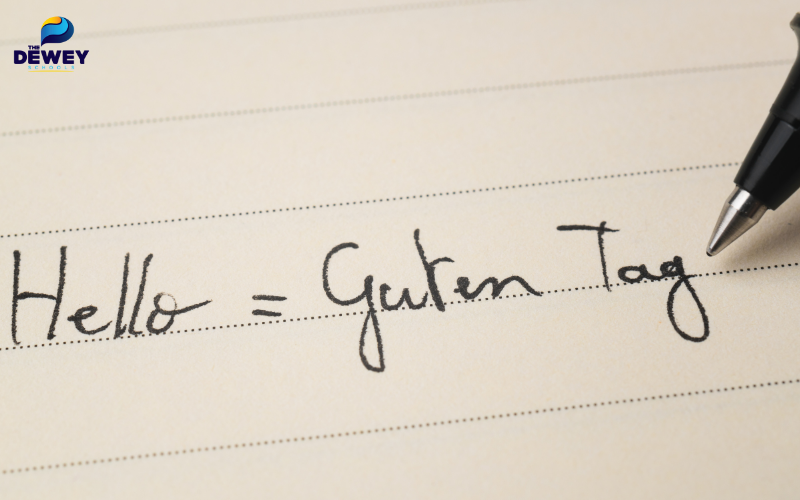 THE
DEWEY
SCHOOLS
Hello = Guten Tag